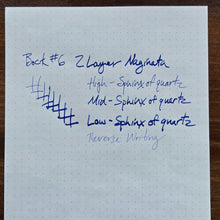 Bock #6 2 Layer Naginata
High - Sphinx of quartz
Mid - Sphinx of quartz
Low - Sphinx of quartz
Reverse Writing